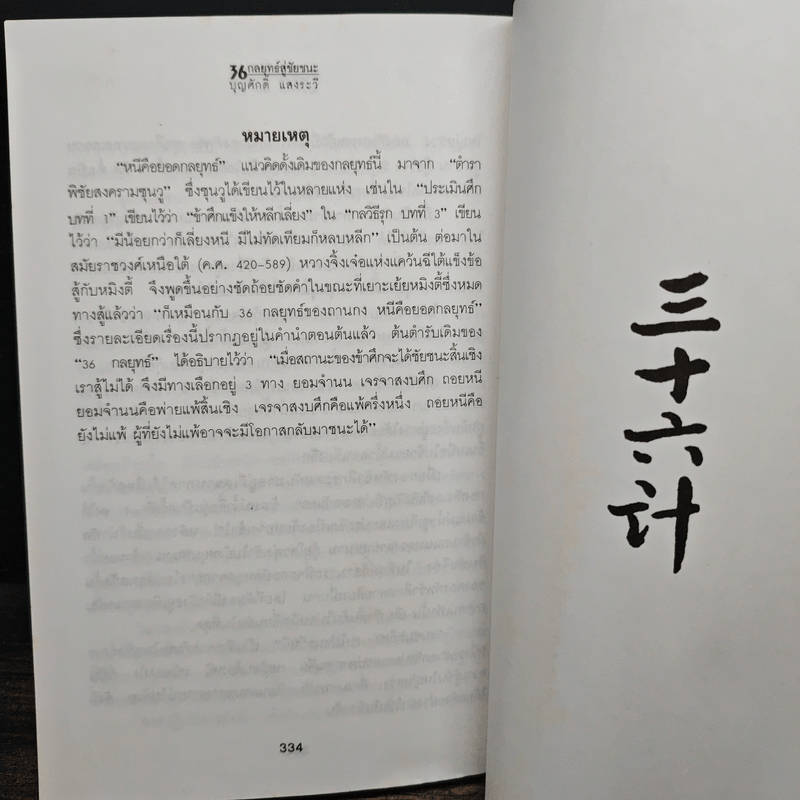 36 กลยุทธ์สู่ชัยชนะ
บุญศักดิ์ แสงระวี
หมายเหตุ
"หนีคือยอดกลยุทธ์" แนวคิดดั้งเดิมของกลยุทธ์นี้ มาจาก "ตำรา
พิชัยสงครามซุนวู" ซึ่งซุนวูได้เขียนไว้ในหลายแห่ง เช่นใน "ประเมินศึก
บทที่ 1" เขียนไว้ว่า "ข้าศึกแข็งให้หลีกเลี่ยง" ใน "กลวิธีรุก บทที่ 3" เขียน
ไว้ว่า "มีน้อยกว่าก็เลี่ยงหนี มีไม่ทัดเทียมก็หลบหลีก" เป็นต้น ต่อมาใน
สมัยราชวงศ์เหนือใต้ (ค.ศ. 420-589) หวางจิ้งเจ๋อแห่งแคว้นฉีใต้แข็งข้อ
สู้กับหมิงตี้ จึงพูดขึ้นอย่างชัดถ้อยชัดคำในขณะที่เยาะเย้ยหมิงตี้ซึ่งหมด
ทางสู้แล้วว่า "ก็เหมือนกับ 36 กลยุทธ์ของถานกง หนีคือยอดกลยุทธ์"
ซึ่งรายละเอียดเรื่องนี้ปรากฏอยู่ในคำนำตอนต้นแล้ว ต้นตำรับเดิมของ
"36 กลยุทธ์" ได้อธิบายไว้ว่า "เมื่อสถานะของข้าศึกจะได้ชัยชนะสิ้นเชิง
เราสู้ไม่ได้ จึงมีทางเลือกอยู่ 3 ทาง ยอมจำนน เจรจาสงบศึก ถอยหนี
ยอมจำนนคือพ่ายแพ้สิ้นเชิง เจรจาสงบศึกคือแพ้ครึ่งหนึ่ง ถอยหนีคือ
ยังไม่แพ้ ผู้ที่ยังไม่แพ้อาจจะมีโอกาสกลับมาชนะได้"
334
三十六计